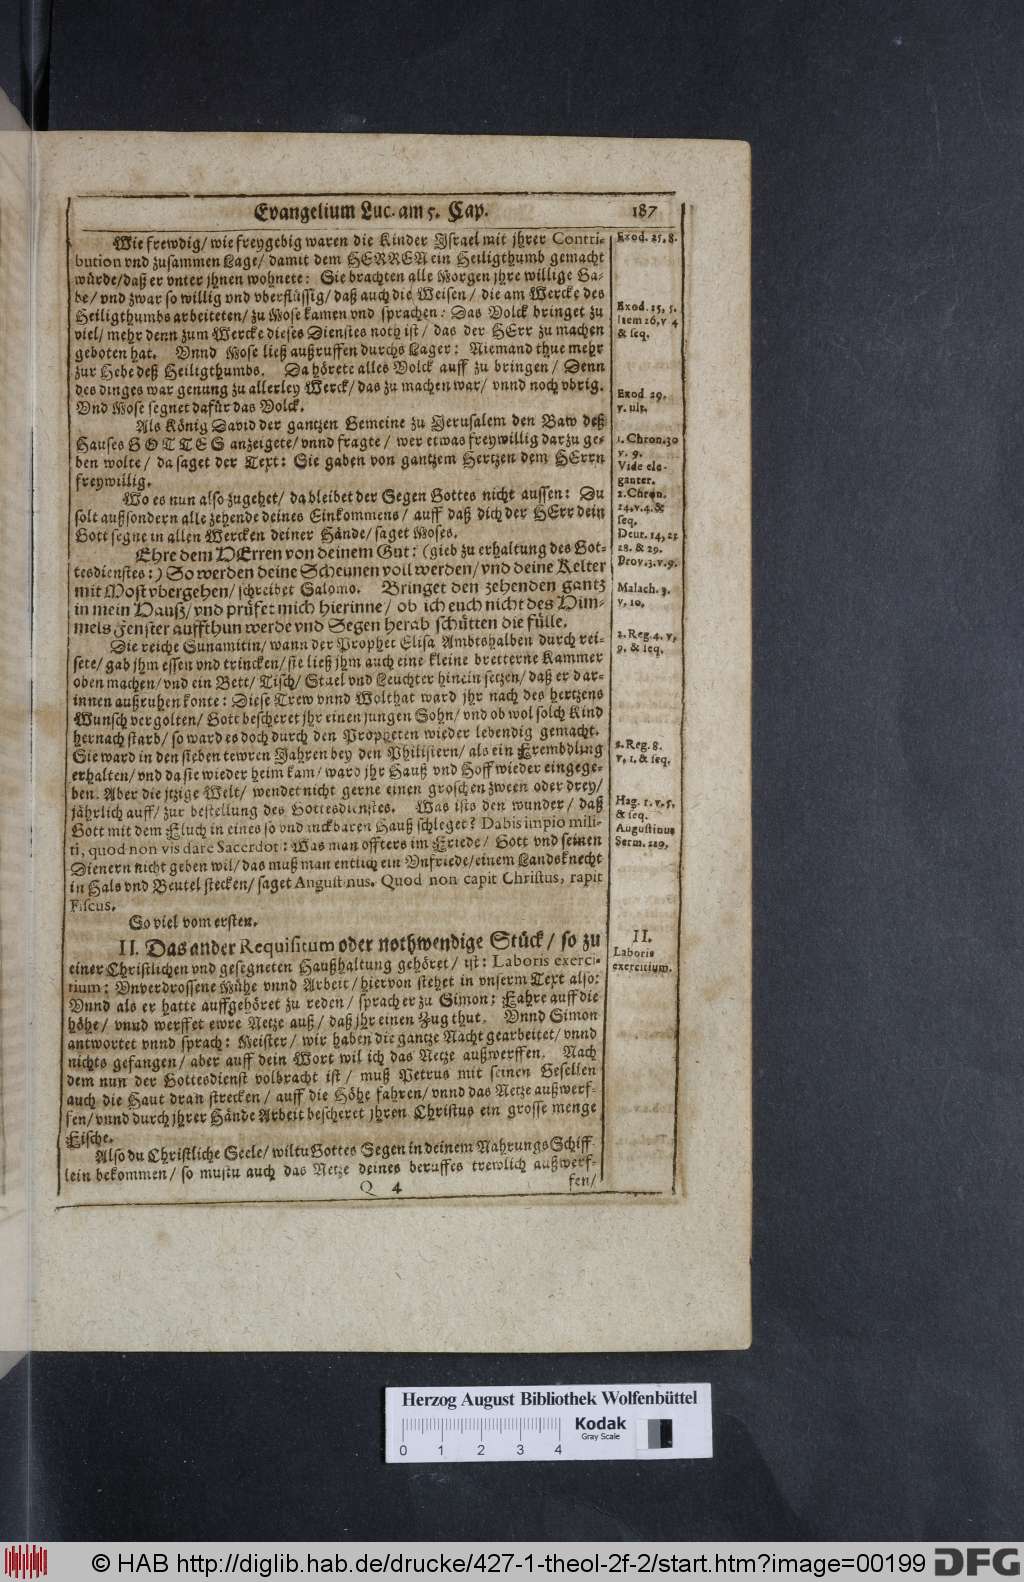 Evangelium Luc. am 5. Cap. 187
Wie frewdig/ wie freygebig waren die Kinder Jsrael mit jhrer Contri-
bution vnd zusammen Lage/ damit dem HERREN ein Heiligthumb gemacht
würde/ daß er vnter jhnen wohnete: Sie brachten alle Morgen jhre willige Ga-
be/ vnd zwar so willig vnd vberflüssig/ daß auch die Weisen/ die am Wercke des
Heiligthumbs arbeiteten/ zu Mose kamen vnd sprachen: Das Volck bringet zu
viel/ mehr denn zum Wercke dieses Dienstes noth ist/ das der HErr zu machen
geboten hat. Vnnd Mose ließ außruffen durchs Lager: Niemand thue mehr
zur Hebe deß Heiligthumbs. Da hörete alles Volck auff zu bringen/ Denn
des dinges war genung zu allerley Werck/ das zu machen war/ vnnd noch vbrig.
Vnd Mose segnet dafür das Volck.
Als König David der gantzen Gemeine zu Jerusalem den Baw deß
Hauses GOTTES anzeigete/ vnnd fragte/ wer etwas freywillig darzu ge-
ben wolte/ da saget der Text: Sie gaben von gantzem Hertzen dem HErrn
freywillig.
Wo es nun also zugehet/ da bleibet der Segen Gottes nicht aussen: Du
solt außsondern alle zehende deines Einkommens/ auff daß dich der HErr dein
Gott segne in allen Wercken deiner Hände/ saget Moses.
Ehre dem HErren von deinem Gut: (gieb zu erhaltung des Got-
tesdienstes:) So werden deine Scheunen voll werden/ vnd deine Kelter
mit Most vbergehen/ schreibet Salomo. Bringet den zehenden gantz
in mein Hauß/ vnd prüfet mich hierinne/ ob ich euch nicht des Him-
mels Fenster auffthun werde vnd Segen herab schütten die fülle.
Die reiche Sunamitin/ wann der Prophet Elisa Ambtshalben durch rei-
sete/ gab jhm essen vnd trincken/ sie ließ jhm auch eine kleine bretterne Kammer
oben machen/ vnd ein Bett/ Tisch/ Stuel vnd Leuchter hinein setzen/ daß er dar-
innen außruhen konte: Diese Trew vnnd Wolthat ward jhr nach des hertzens
Wunsch vergolten/ Gott bescheret jhr einen jungen Sohn/ vnd ob wol solch Kind
hernach starb/ so ward es doch durch den Propheten wieder lebendig gemacht.
Sie ward in den sieben tewren Jahren bey den Philistern/ als ein Frembdling
erhalten/ vnd da sie wieder heim kam/ ward jhr Hauß vnd Hoff wieder eingege-
ben. Aber die jtzige Welt/ wendet nicht gerne einen groschen zween oder drey/
jährlich auff/ zur bestellung des Gottesdienstes. Was ists den wunder/ daß
Gott mit dem Fluch in eines so vndanckbaren Hauß schleget? Dabis impio mili-
ti, quod non vis dare Sacerdot: Was man offters im Friede/ Gott vnd seinen
Dienern nicht geben wil/ das muß man entlich ein Vnfriede/ einem Landsknecht
in Hals vnd Beutel stecken/ saget Augustinus. Quod non capit Christus, rapit
Fiscus.
So viel vom ersten.
II. Das ander Requisitum oder nothwendige Stück/ so zu
einer Christlichen vnd gesegneten Haußhaltung gehöret/ ist: Laboris exerci-
tium: Vnverdrossene Mühe vnnd Arbeit/ hiervon stehet in vnserm Text also:
Vnnd als er hatte auffgehöret zu reden/ sprach er zu Simon: Fahre auff die
höhe/ vnnd werffet ewre Netze auß/ daß jhr einen Zug thut. Vnnd Simon
antwortet vnnd sprach: Meister/ wir haben die gantze Nacht gearbeitet/ vnnd
nichts gefangen/ aber auff dein Wort wil ich das Netze außwerffen. Nach
dem nun der Gottesdienst volbracht ist/ muß Petrus mit seinen Gesellen
auch die Haut dran strecken/ auff die Höhe fahren/ vnnd das Netze außwerf-
fen/ vnnd durch jhrer Hände Arbeit bescheret jhren Christus ein grosse menge
Fische.
Also du Christliche Seele/ wiltu Gottes Segen in deinem Nahrungs Schiff-
lein bekommen/ so mustu auch das Netze deines beruffes trewlich außwerf-
Q 4 fen/
Exod. 25, 8.
Exod. 35, 5.
Item 36, v 4
& seq.
Exod 39.
v. ult.
1. Chron. 30
v. 9.
Vide ele-
ganter.
2. Chron.
24. v. 4. &
seq.
Deut. 14, 23
28. & 29.
Prov. 3. v. 9.
Malach. 3.
v. 10.
2. Reg. 4. v,
9. & seq.
2. Reg. 8.
v, 1. & seq.
Hag. 1. v. 5.
& seq.
Augustinus
Serm. 219.
II.
Laboris
exercitium.
Herzog August Bibliothek Wolfenbüttel
Kodak
Gray Scale
0 1 2 3 4
© HAB http://diglib.hab.de/drucke/427-1-theol-2f-2/start.htm?image=00199 DFG